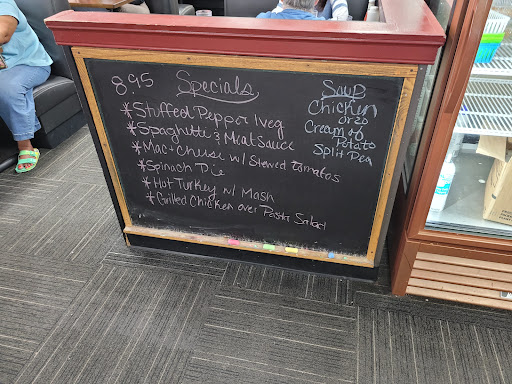 8.95 Specials
*Stuffed Pepper 1 veg
*Spaghetti & Meat Sauce
*Mac + Cheese w/ Stewed Tomatos
*Spinach Pie
*Hot Turkey w/ Mash
*Grilled Chicken over Pasta Salad
Soup
Chicken
orzo
Cream of
Potato
Split Pea